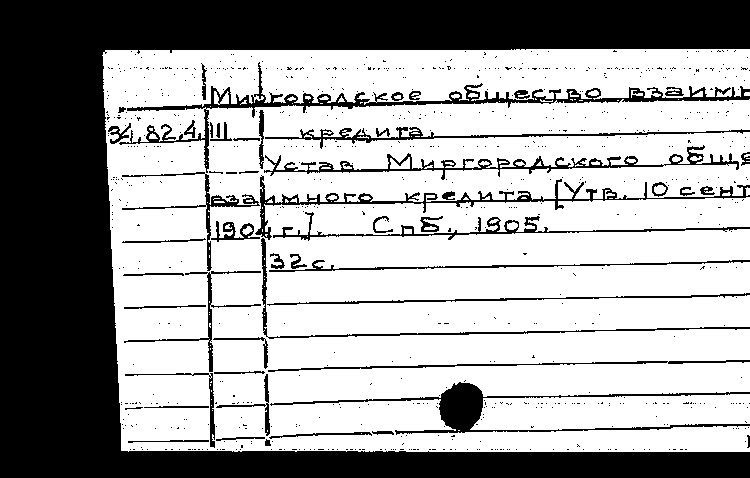 Миргородское общество взаимн
34.82.4.III кредита.
Устав Миргородского обще
взаимного кредита. [Утв. 10 сент
1904 г.]. СпБ., 1905.
32 с.